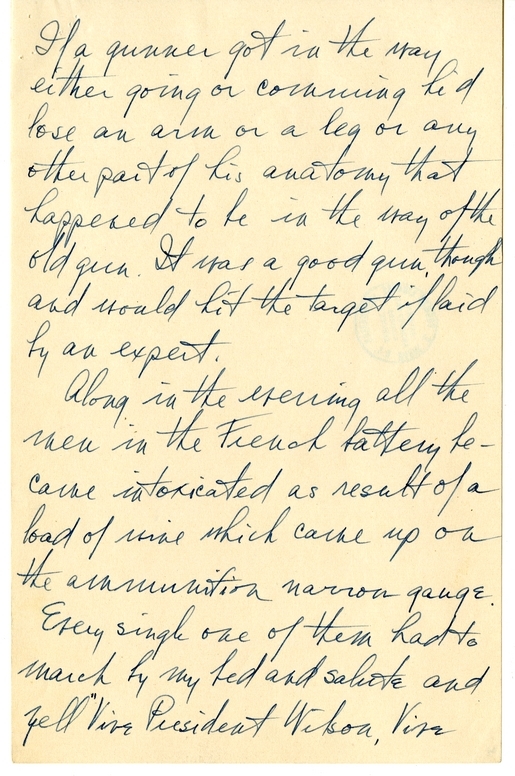 If a gunner got in the way
either going or comming he'd
lose an arm or a leg or any
other part of his anatomy that
happened to be in the way of the
old gun. It was a good gun, though
and would hit the target if laid
by an expert.
Along in the evening all the
men in the French battery be-
came intoxicated as result of a
load of wine which came up on
the ammunition narrow gauge.
Every single one of them had to
march by my bed and salute and
yell "Vive President Wilson, Vive